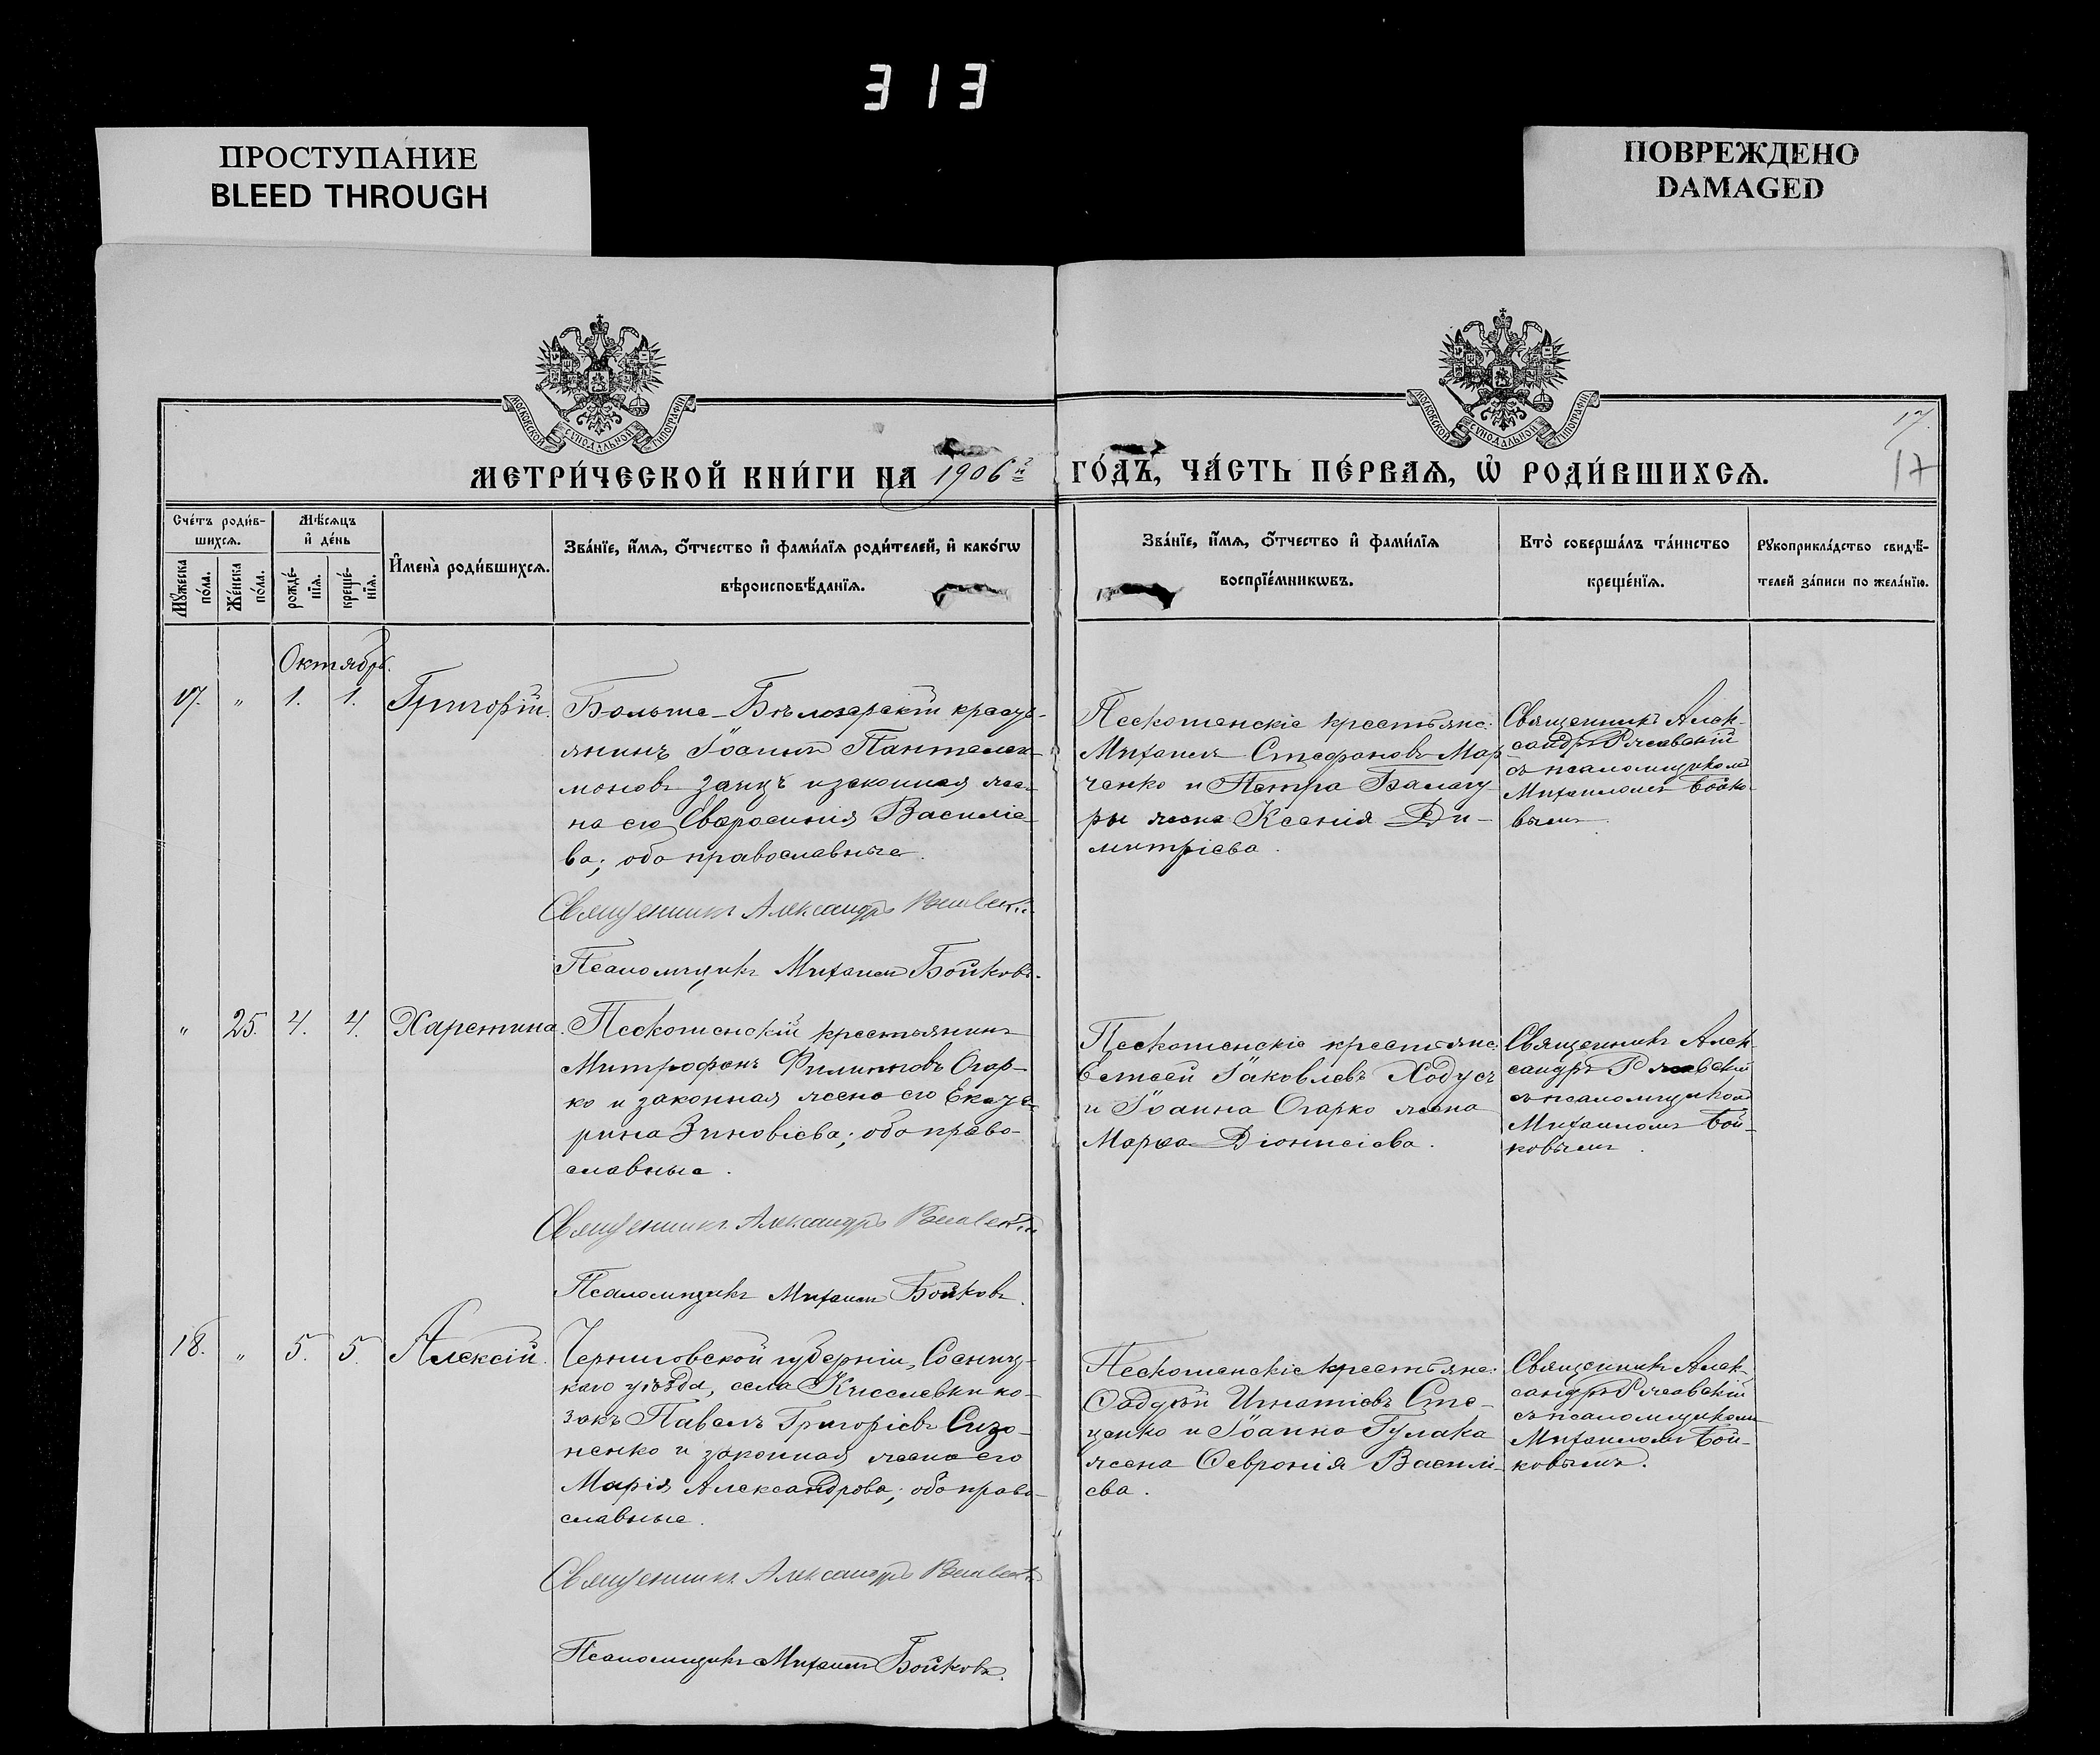 313
ПРОСТУПАНИЕ
BLEED THROUGH
ПОВРЕЖДЕНО
DAMAGED
МОСКОВСКОЙ СѴНОДАЛЬНОЙ ТИПОГРАФІИ
МОСКОВСКОЙ СѴНОДАЛЬНОЙ ТИПОГРАФІИ
17.
17
МЕТРИ́ЧЕСКОЙ КНИ́ГИ НА 1906й ГО́ДЪ, ЧА́СТЬ ПЕ́РВАѦ, Ѡ҆ РОДИ́ВШИХСѦ.
Сче́тъ роди́в-
шихсѧ.
Мꙋ́жеска по́ла.
Же́нска по́ла.
Мѣ́сѧцъ
и҆ де́нь
рожде́-
нїѧ.
креще́-
нїѧ.
И҆мена̀ роди́вшихсѧ.
Зва́нїе, и҆́мѧ, ѻ҆́тчество и҆ фами́лїѧ роди́телей, и҆ како́гѡ
вѣроисповѣ́данїѧ.
Зва́нїе, и҆́мѧ, ѻ҆́тчество и҆ фами́лїѧ
воспрїе́мникѡвъ.
Кто̀ соверша́лъ та́инство
креще́нїѧ.
Рꙋкоприкла́дство свидѣ́-
телей за́писи по жела́нїю.
Октябрь.
17. " 1. 1. Григорій.
Больше-Бѣлозерскій кресть-
янинъ Іоаннъ Пантелеи-
моновъ Заяцъ и законная же-
на его Евфросинія Василіе-
ва; оба православные.
Священникъ Александръ
Псаломщикъ Михаилъ Бойковъ.
Пескошенскіе крестьяне:
Михаилъ Стефановъ Мар-
ченко и Петра Балагу-
ры жена Ксенія Ди-
митріева.
Священникъ Алек-
сандръ
съ псаломщикомъ
Михаиломъ Бойко-
вымъ
" 25. 4. 4. Харетина.
Пескошенскій крестьянинъ
Митрофанъ Филипповъ Огар-
ко и законная жена его Екате-
рина Зиновіева; оба право-
славные.
Священникъ Александръ
Псаломщикъ Михаилъ Бойковъ.
Пескошенскіе крестьяне:
Евтихій Іаковлевъ Ходусъ
и Іоанна Огарко жена
Марѳа Діонисіева.
Священникъ Алек-
сандръ
съ псаломщикомъ
Михаиломъ Бой-
ковымъ.
18. " 5. 5. Алексій.
Черниговской губерніи, Сосниц-
каго уѣзда, села Киселевки ко-
закъ Павелъ Григоріевъ Сизо-
ненко и законная жена его
Марія Александрова; оба право-
славные.
Священникъ Александръ
Псаломщикъ Михаилъ Бойковъ.
Пескошенскіе крестьяне:
Игнатіевъ Сте-
ценко и Іоанна Гулака
жена Февронія Василі-
ева.
Священникъ Алек-
сандръ
съ псаломщикомъ
Михаиломъ Бой-
ковымъ.